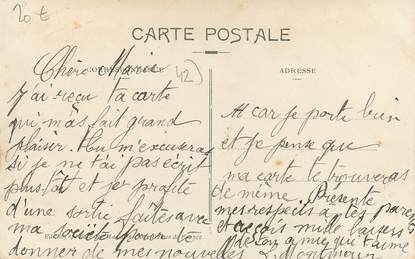 20 €
CARTE POSTALE
CORRESPONDANCE
ADRESSE
42
Chère Marie
J'ai reçu ta carte
qui m'as fait grand
plaisir. Tu m'excuseras
si je ne t'ai pas écrit
plustôt et je profite
d'une sortie faîtes avec
ma société pour te
donner de mes nouvelles
At car je porte bien
et je pense que
ma carte te trouveras
de même. Presente
mes respects a tes parents
et reçois mille baisers
de ton ami qui t'aime